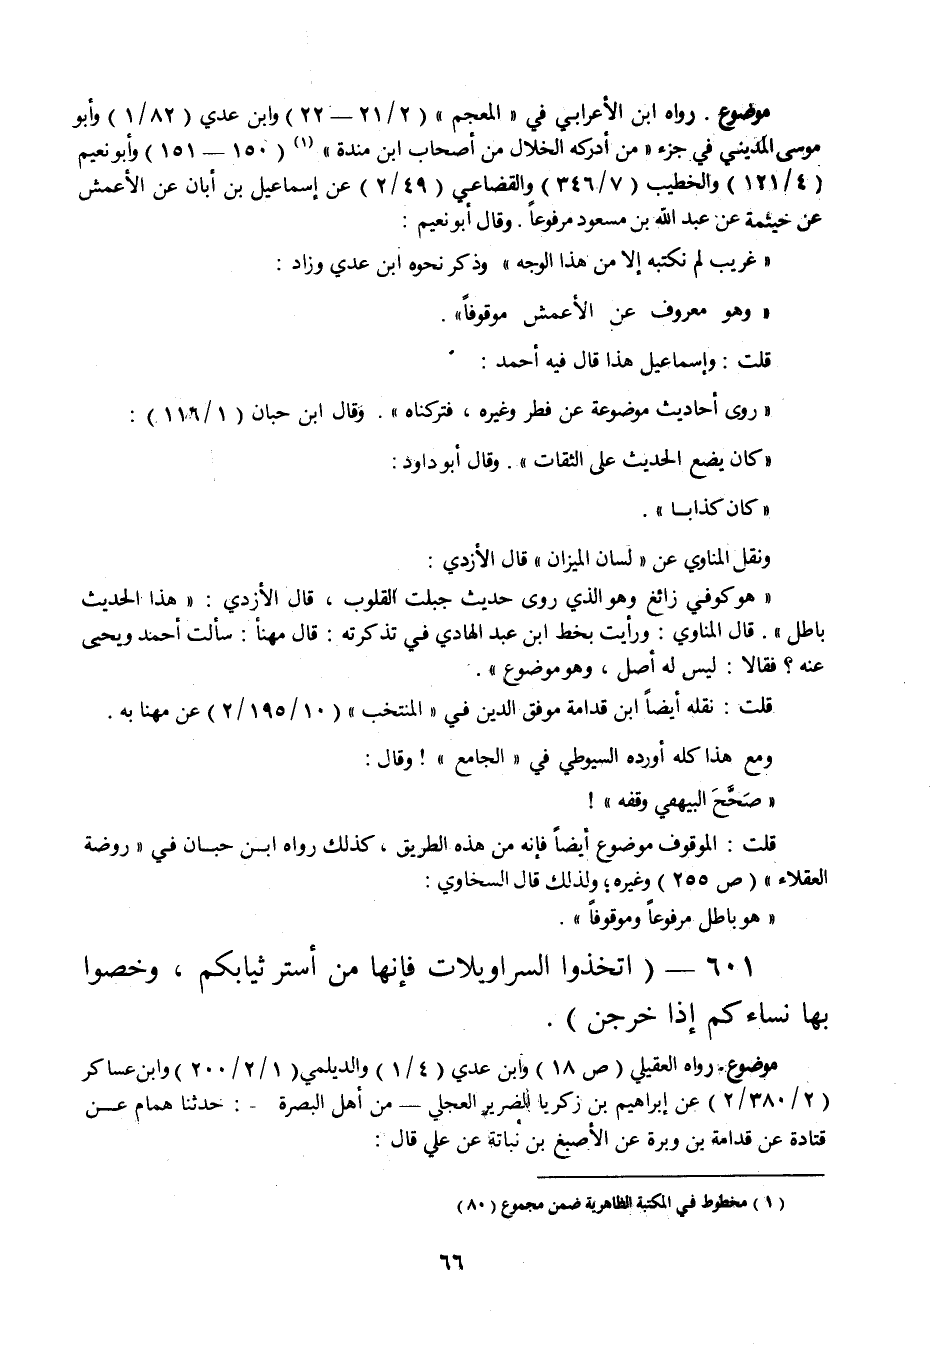 موضوع . رواه ابن الأعرابي في « المعجم » ( ٢/ ٢١ — ٢٢ ) وابن عدي ( ٨٢/ ١ ) وأبو
موسى المديني في جزء « من أدركه الخلال من أصحاب ابن مندة » (١) ( ١٥٠ — ١٥١ ) وأبو نعيم
( ٤/ ١٢١ ) والخطيب ( ٧/ ٣٤٦ ) والقضاعي ( ٤٩/ ٢ ) عن إسماعيل بن أبان عن الأعمش
عن خيثمة عن عبد الله بن مسعود مرفوعاً . وقال أبو نعيم :
« غريب لم نكتبه إلا من هذا الوجه » وذكر نحوه ابن عدي وزاد :
« وهو معروف عن الأعمش موقوفاً» .
قلت : وإسماعيل هذا قال فيه أحمد :
« روى أحاديث موضوعة عن فطر وغيره ، فتركناه » . وقال ابن حبان ( ١/ ١١٦ ) :
«كان يضع الحديث على الثقات » . وقال أبو داود :
« كان كذابـا » .
ونقل المناوي عن « لسان الميزان » قال الأزدي :
« هو كوفي زائغ وهو الذي روى حديث جبلت القلوب ، قال الأزدي : « هذا الحديث
باطل » . قال المناوي : ورأيت بخط ابن عبد الهادي في تذكرته : قال مهنأ : سألت أحمد ويحيى
عنه ؟ فقالا : ليس له أصل ، وهو موضوع » .
قلت : نقله أيضاً ابن قدامة موفق الدين في « المنتخب » ( ١٠/ ١٩٥/ ٢ ) عن مهنا به .
ومع هذا كله أورده السيوطي في « الجامع » ! وقال :
« صَحَّحَ البيهقي وقفه » !
قلت : الموقوف موضوع أيضاً فإنه من هذه الطريق ، كذلك رواه ابـن حبـان في « روضة
العقلاء » ( ص ٢٥٥ ) وغيره؛ ولذلك قال السخاوي :
« هو باطل مرفوعاً وموقوفاً » .
٦٠١ — ( اتخذوا السراويلات فإنها من أستر ثيابكم ، وخصوا
بها نساءكم إذا خرجن ) .
موضوع . رواه العقيلي ( ص ١٨ ) وابن عدي ( ٤/ ١ ) والديلمي( ١/ ٢/ ٢٠٠ ) وابن عساكر
( ٢/ ٣٨٠/ ٢ ) عن إبراهيم بن زكريا الضرير العجلي — من أهل البصرة - : حدثنا همام عـن
قتادة عن قدامة بن وبرة عن الأصبغ بن نُباتة عن علي قال :
( ١ ) مخطوط في المكتبة الظاهرية ضمن مجموع ( ٨٠ )
٦٦